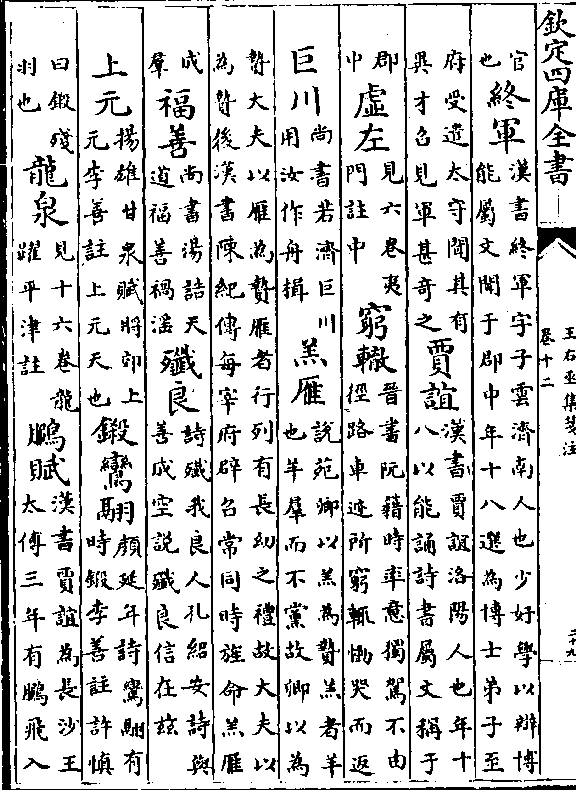 欽定四庫全書
王右丞集箋注
卷十二
二十九
官
也
終軍
漢書終軍字子雲濟南人也少好學以辯博
能屬文聞于郡中年十八選為博士弟子至
府受遣太守聞其有
異才召見軍甚奇之
賈誼
漢書賈誼洛陽人也年十
八以能誦詩書屬文稱于
郡
中
虛左
見六卷夷
門註中
窮轍
晉書阮籍時率意獨駕不由
徑路車迹所窮輒慟哭而返
巨川
尚書若濟巨川
用汝作舟楫
羔雁
說苑卿以羔為贄羔者羊
也羊羣而不黨故卿以為
贄大夫以雁為贄雁者行列有長幼之禮故大夫以
為贄後漢書陳紀傳每宰府辟召常同時旌命羔雁
成
羣
福善
尚書湯誥天
道福善禍淫
殲良
詩殲我良人孔紹安詩與
善成空說殲良信在玆
上元
揚雄甘泉賦將郊上
元李善註上元天也
鍛鸞翮
顏延年詩鸞翮有
時鍛李善註許慎
曰鍛殘
羽也
龍泉
見十六卷龍
躍平津註
鵩賦
漢書賈誼為長沙王
太傅三年有鵩飛入